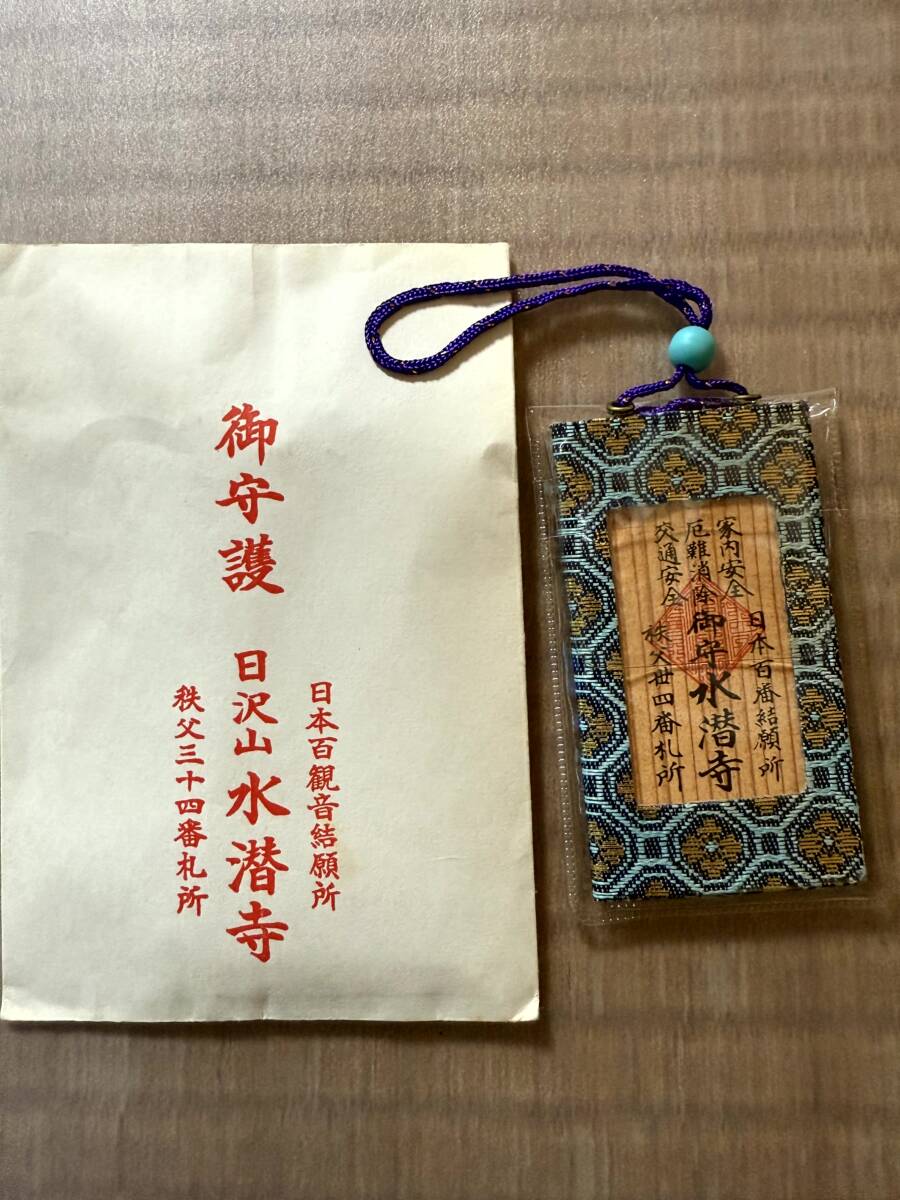 日本百観音結願所
御守護 日沢山水潜寺
秩父三十四番札所
家内安全
厄難消除
交通安全
日本百番結願所
御守水潜寺
秩父卅四番札所